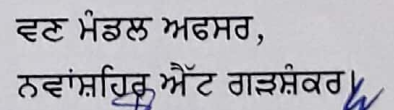 ਵਣ ਮੰਡਲ ਅਫਸਰ,
ਨਵਾਂਸ਼ਹਿਰ ਐੱਟ ਗੜਸ਼ੰਕਰ।